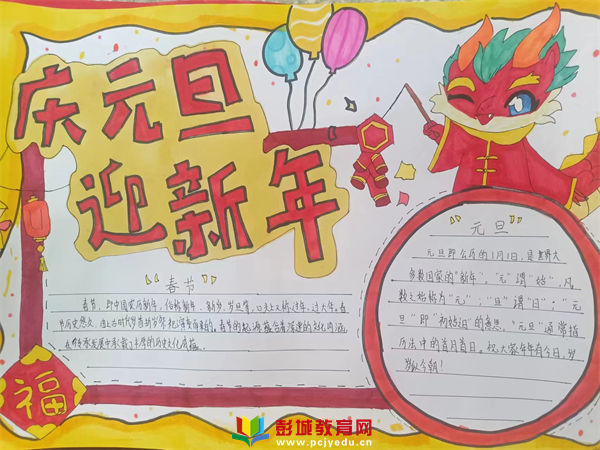 庆元旦
迎新年
"春节"
春节,即中国农历新年,俗称新春、新岁、岁旦等,口头上又称过年、过大年。春
节历史悠久,由上古时代岁首祈岁祭祀演变而来的。春节的起源蕴含着深邃的文化内涵,
在传承发展中承载了丰厚的历史文化底蕴。
"元旦"
元旦即公历的1月1日,是世界大
多数国家的"新年"。"元"谓"始",凡
数之始称为"元";"旦"谓"日";"元
旦"即"初始之日"的意思。"元旦"通常指
历法中的首月首日。祝大家年年有今日,岁
岁有今朝!
福
彭城教育网
www.pcjyedu.cn